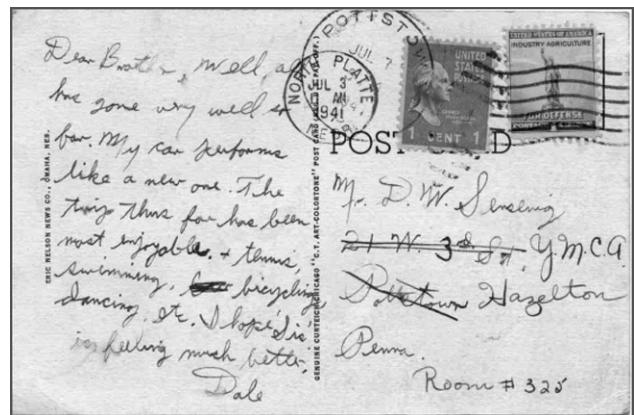 Dear Brother, Well, all
has gone very well so
far. My car performs
like a new one. The
trip thus far has been
most enjoyable. + tennis,
swimming, bicycling,
dancing, etc. I hope 'Sis'
is feeling much better,
Dale
ERIC NELSON NEWS CO., OMAHA, NEB.
GENUINE CURTEICH-CHICAGO "C.T. ART-COLORTONE" POST CARD
POTTSTOWN
JUL 7
NORTH PLATTE
JUL 3
1941
UNITED
STATES
POSTAGE
1 CENT 1
UNITED STATES OF AMERICA
INDUSTRY AGRICULTURE
FOR DEFENSE
POST CARD
Mr. D. W. Sensenig
21 W. 3rd St. Y.M.C.A.
Pottstown Hazelton
Penna.
Room # 325